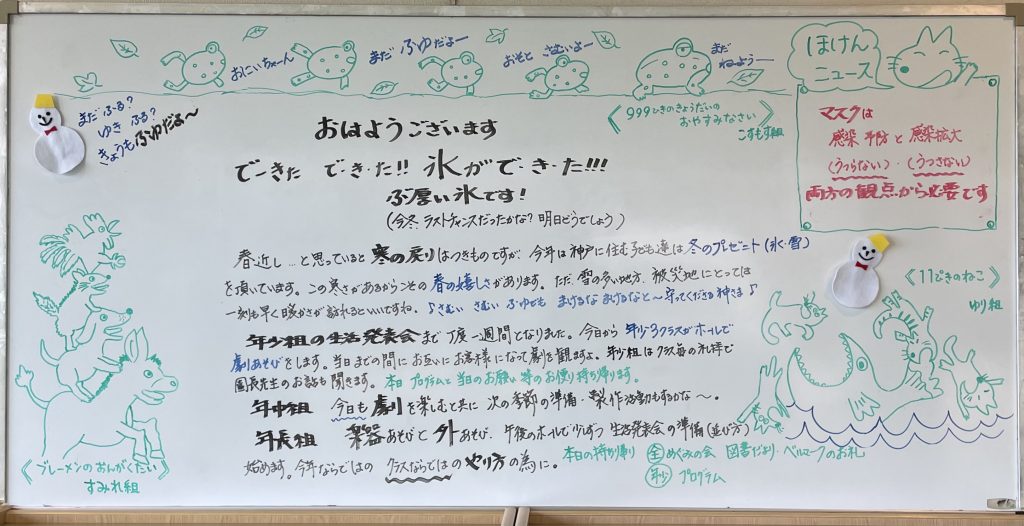 おにいちゃーん
まだ ふゆだよー
おそと さむいよー
まだ
ねようー
ほけん
ニュース
まだ ふーる?
ゆき ふる?
きょうも ふゆだよ〜
《999ひきのきょうだいの
おやすみなさい》
こすもす組
マスクは
感染 予防 と 感染拡大
(うつらない)・(うつさない)
両方の観点から必要です
おはようございます
でーきた で・き・た!! 氷がで・き・た!!!
ぶ厚い氷です!
(今冬 ラストチャンスだったかな? 明日どうでしょう)
春近し…と思っていると 寒の戻りはつきものですが、今年は神戸に住む子ども達は冬のプレゼント(氷・雪)
を頂いています。この寒さがあるからこその 春の嬉しさがあります。ただ、雪の多い地方、被災地にとっては
一刻も早く暖かさが訪れるといいですね。♪さむい さむい ふゆでも まけるな まけるなと〜守ってくださる神さま♪
年少組の生活発表会まで 丁度一週間となりました。今日から 年少3クラスがホールで
劇あそびをします。当日までの間にお互いにお客様になって劇を観ますよ。年少組はクラス毎の礼拝で
園長先生のお話も聞きます。本日 プログラムと当日のお願い等のお便り持ち帰ります。
年中組 今日も劇を楽しむと共に 次の季節の準備・製作活動もするかな〜。
年長組 楽器あそびと外あそび、午後のホールで少しずつ 生活発表会の準備(並び方)
始めます。今年ならではの クラスならではのやり方の為に。
本日の持ち帰り 全 めぐみの会 図書だより・ベルマークのお礼
年少 プログラム
《11ぴきのねこ》
ゆり組
《ブレーメンのおんがくたい》
すみれ組